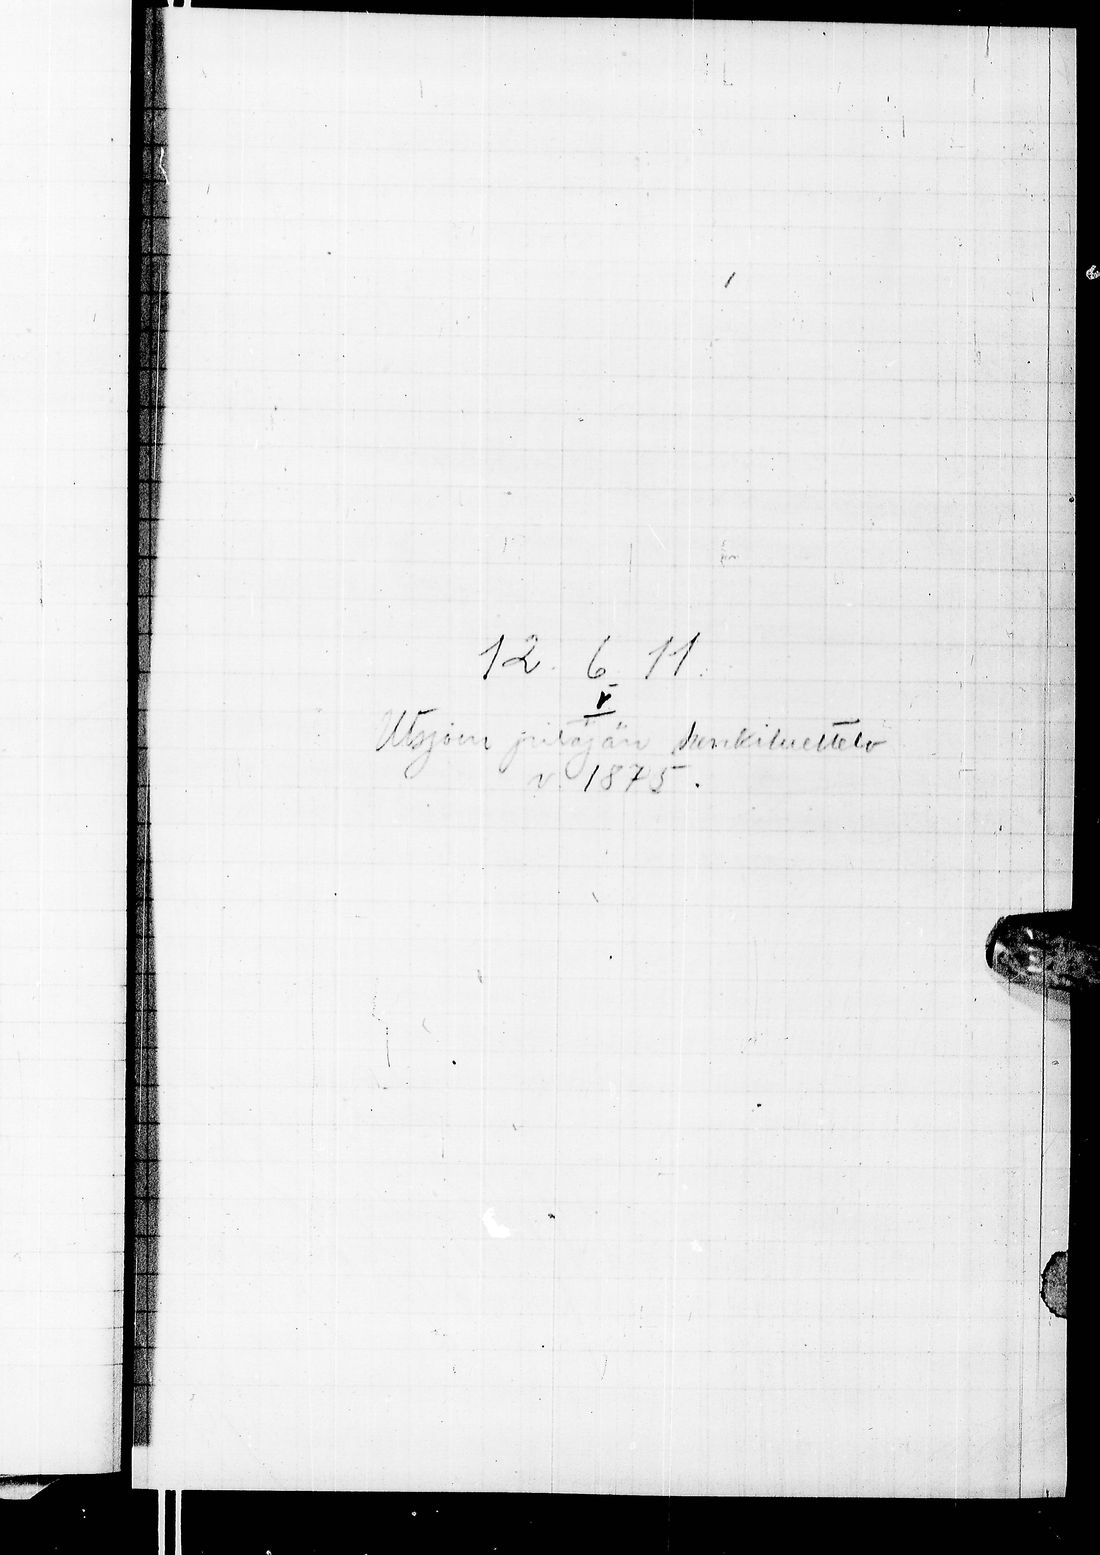 12. 6. 11.
r
Utsjoen pitäjän henkiluettelo
v. 1875.